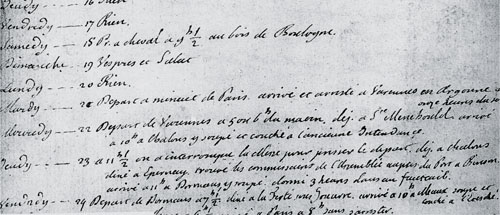 Jeudy ---- 16 Rien
Vendredy ---- 17 Rien.
Samedy ---- 18 Pr. a cheval a 9h 1/2 au bois de Boulogne
Dimanche 19 Vespres et Salut
Lundy ---- 20 Rien.
Mardy ---- 21 Depart a minuit de Paris. arrivé et arresté a Varennes en Argonne a onze heures du soir
Mercredy --- 22 Depart de Varennes a 5 ou 6h du matin, dej. a Ste Menehould, arrivé
a 10h a Chalons y soupé et couché a l'ancienne Intendance.
Jeudy --- 23 a 11h 1/2 on a interrompu la Messe pour presser le depart, dej. a chalons
diné a Epernay, trouvé les commissaires de l'Assemblée auprès du Port a Binson
arrivé a 11h a Dormans y soupé, dormi 3 heures dans un fauteuil.
Vendredy --- 24 Depart de Dormans a 7h 1/2 diné a la Ferté sous Jouarre, arrivé a 10h a Meaux soupé et
couché a l'Evesché
a Paris a 8h sans s'arreter.